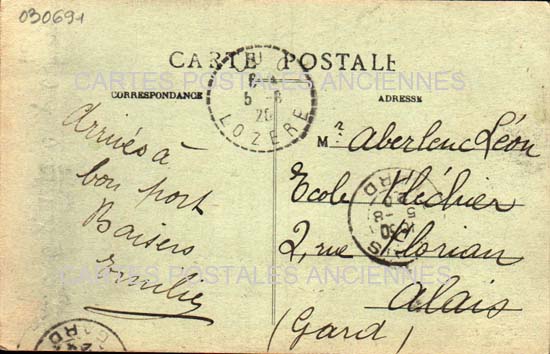 030691
CARTE POSTALE
CARTES POSTALES ANCIENNES
CORRESPONDANCE
ADRESSE
5 -8
20
LOZERE
Arrivés à
bon port
Baisers
Emilie
Mr Aberlenc Léon
Ecole Fléchier
2, rue Florian
Alais
(Gard)
GARD
CARTES POSTALES ANCIENNES
GARD